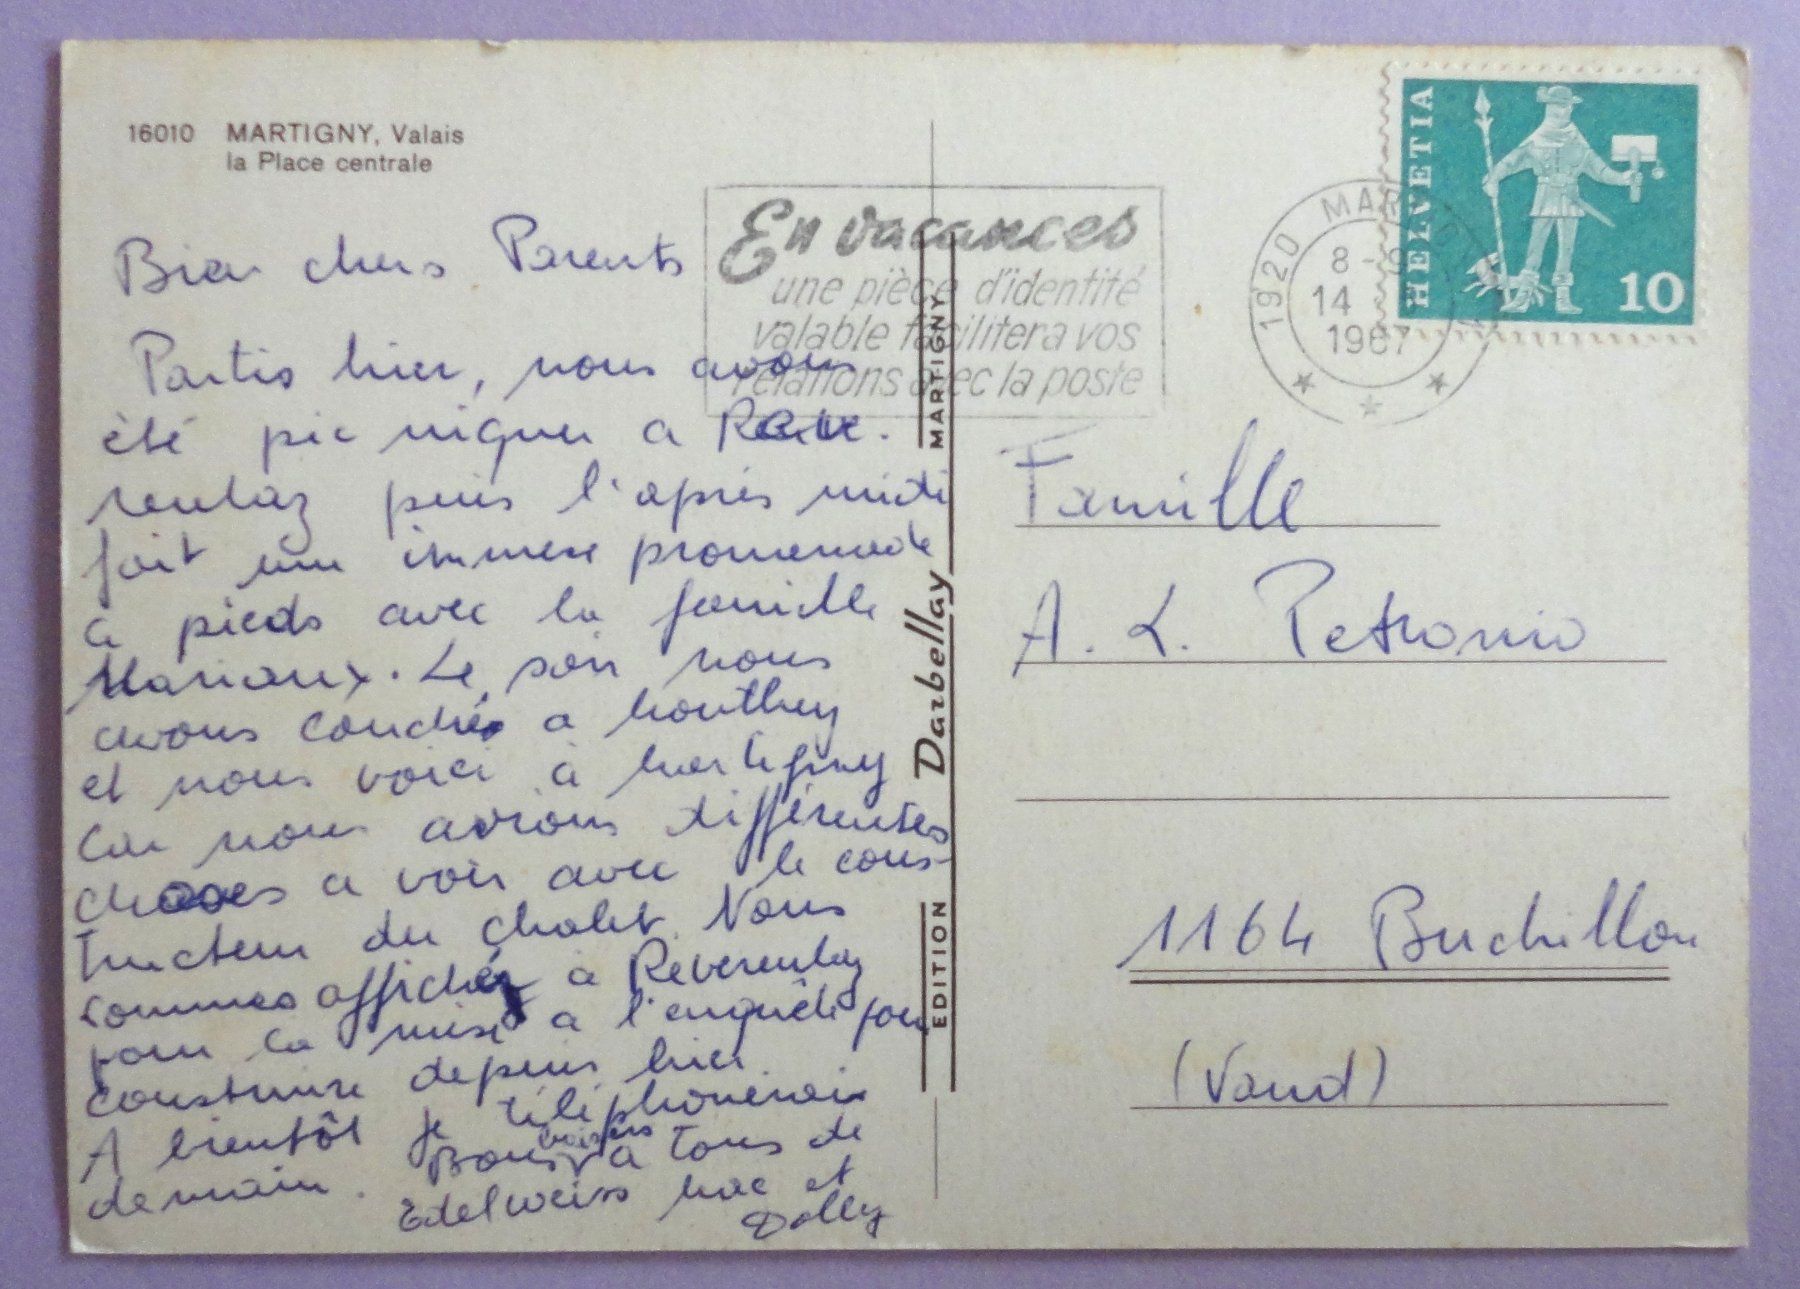 16010 MARTIGNY, Valais
la Place centrale
Bien chers Parents
Partis hier, nous avons
été pic niquer a Reve.
rentaz puis l'après midi
fait une immense promenade
a pieds avec la famille
Mariaux. Le soir nous
avons couchés a Monthey
et nous voici à Martigny
car nous avions différentes
choses a voir avec le cons-
tructeur du chalet. Nous
sommes affichés à Reverentaz
pour la mise a l'enquête pour
construire depuis hier.
A bientôt je téléphonerais
demain. Bons baisers a tous de
Edelweiss Mac et
Dolly
En vacances
une pièce d'identité
valable facilitera vos
relations avec la poste
EDITION Darbellay MARTIGNY
1920 MARTIGNY
8-9
14
1967
HELVETIA
10
Famille
A. L. Petronio
1164 Buchillon
(Vaud)